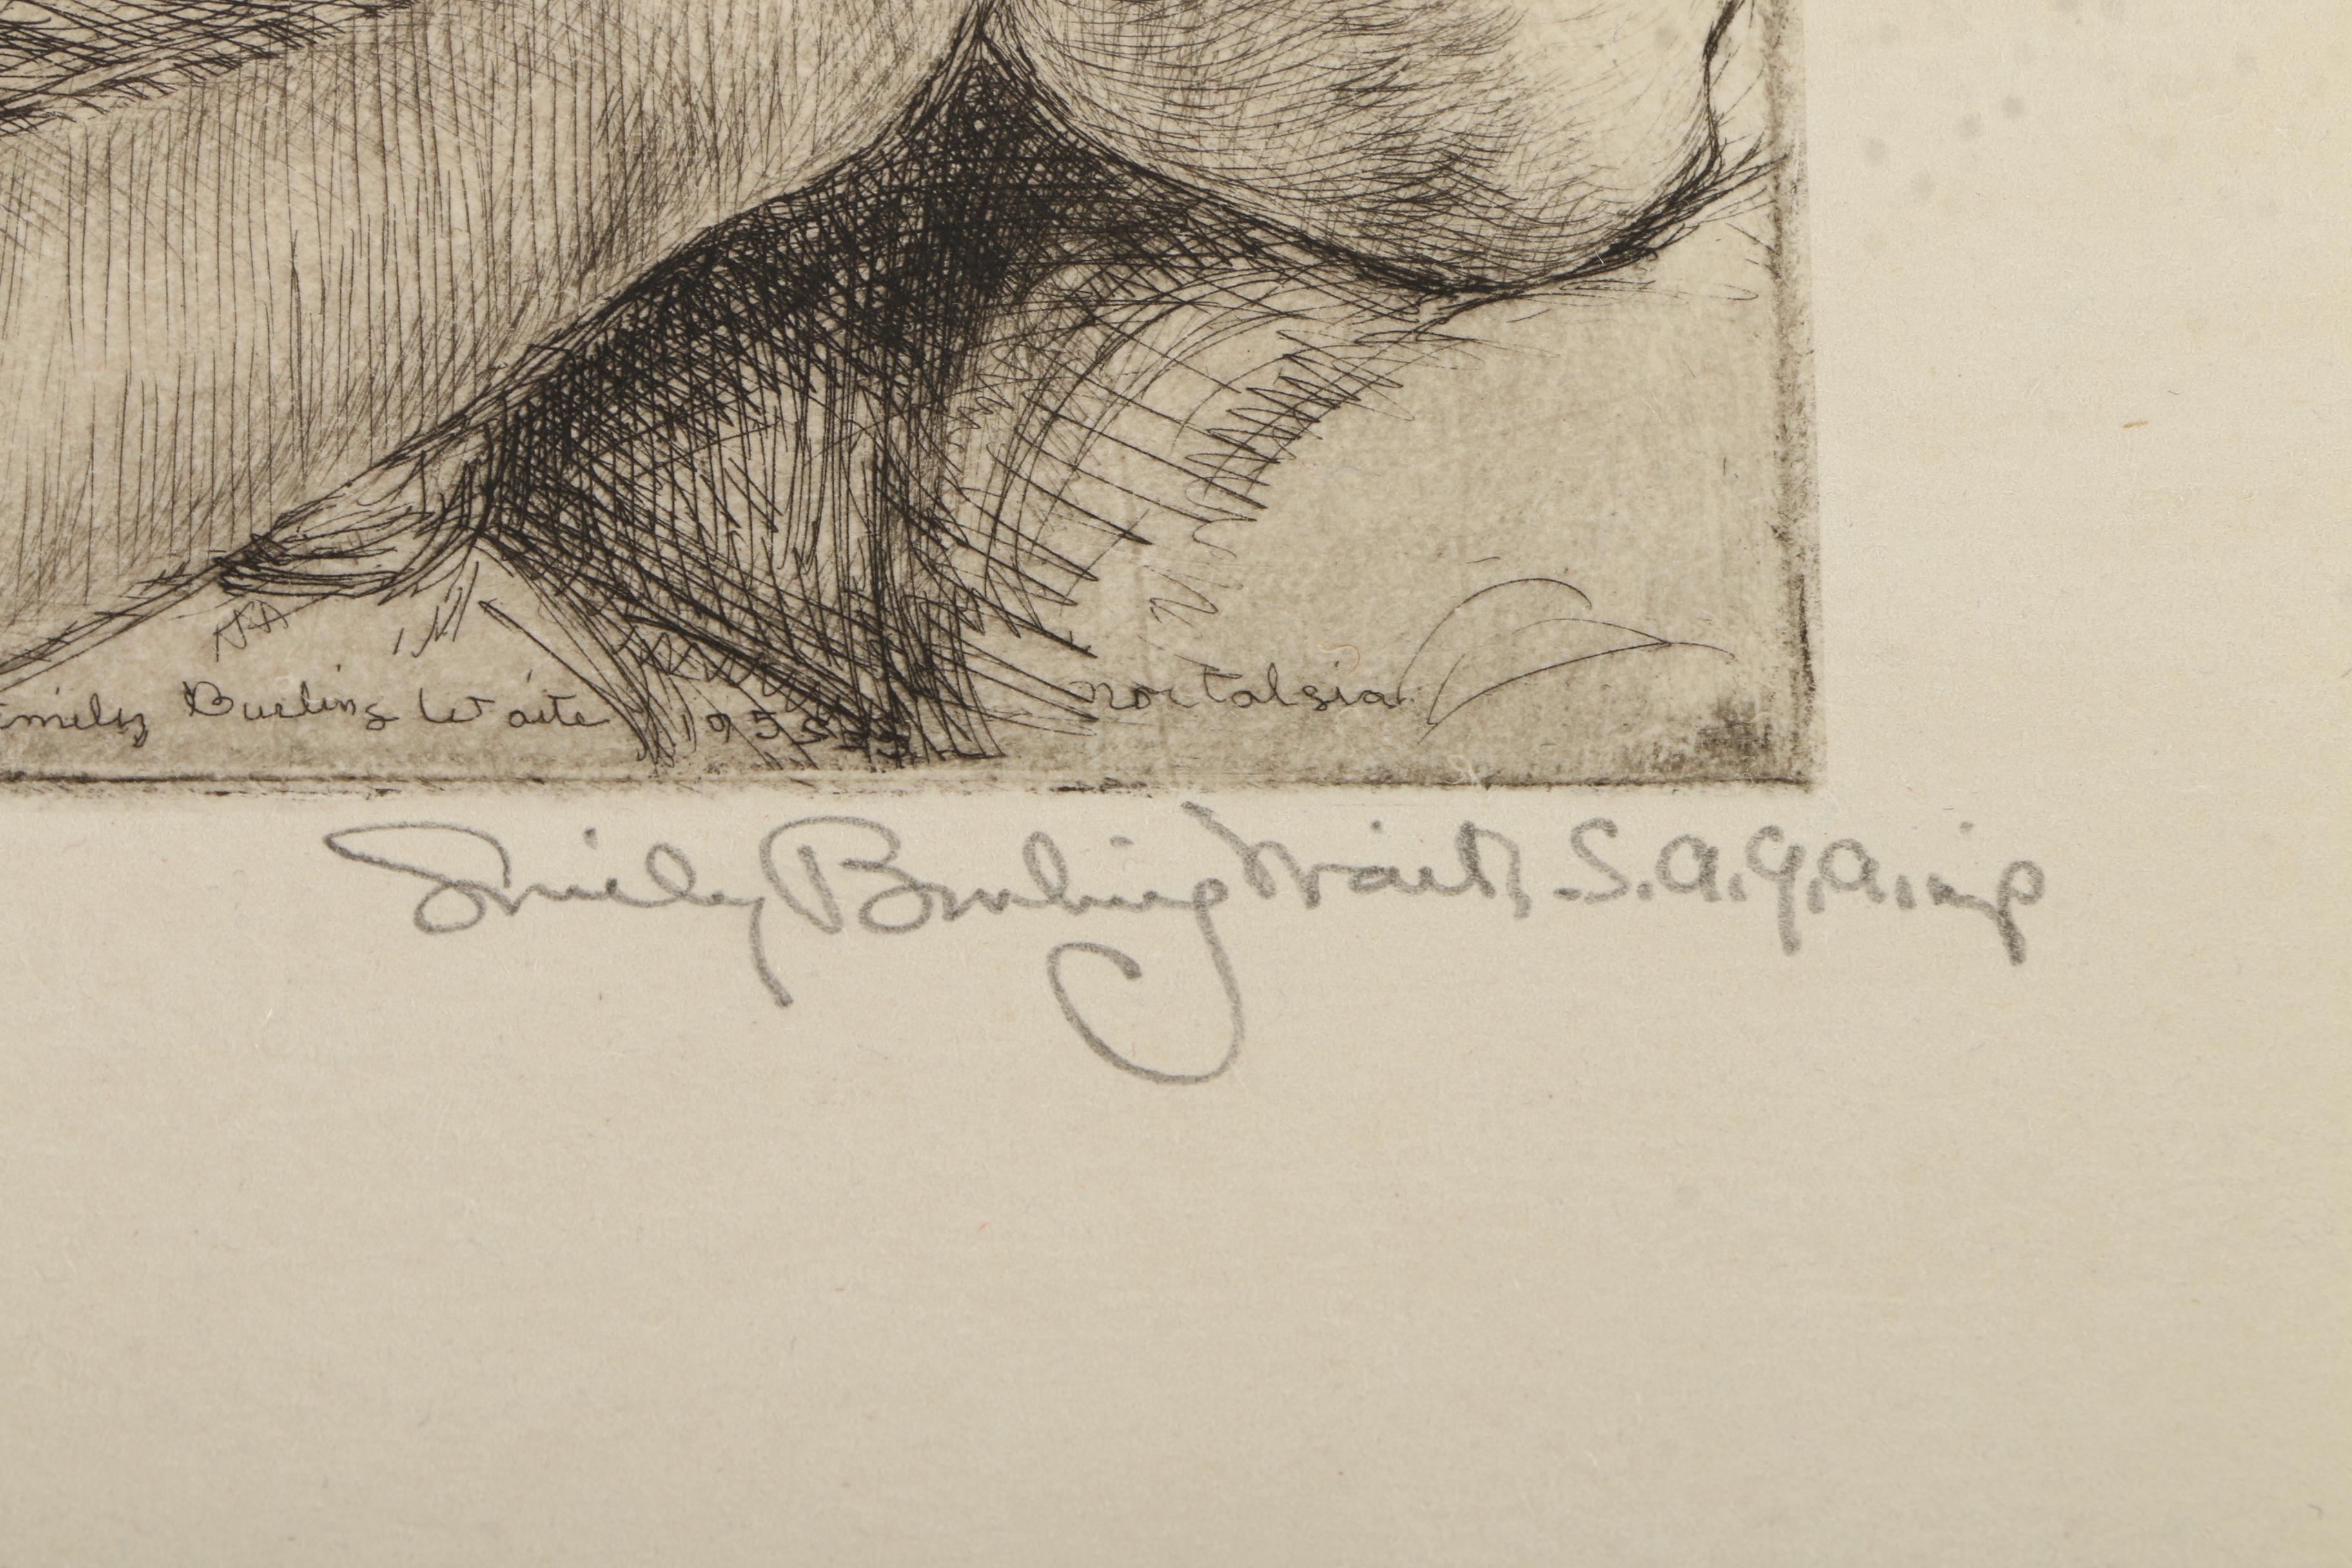 Emily Burling Waite 1955 Nostalgia
Emily Burling Waite, S.A.G.A. imp